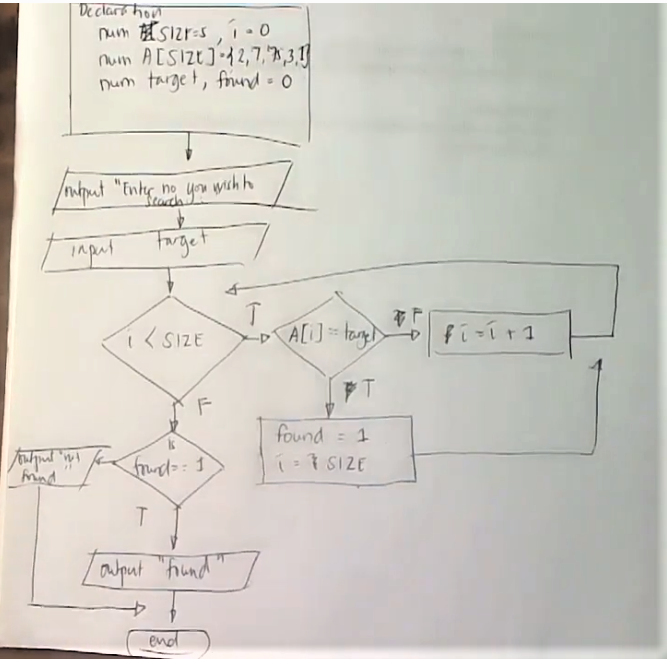 Declaration
num SIZE=5, i=0
num A[SIZE]={2,7,75,3,1}
num target, found = 0
output "Enter no you wish to
search"
input target
i < SIZE
T
A[i]==target
F
i = i + 1
T
found = 1
i = SIZE
F
is
found== 1
output "not
found"
T
output "found"
end